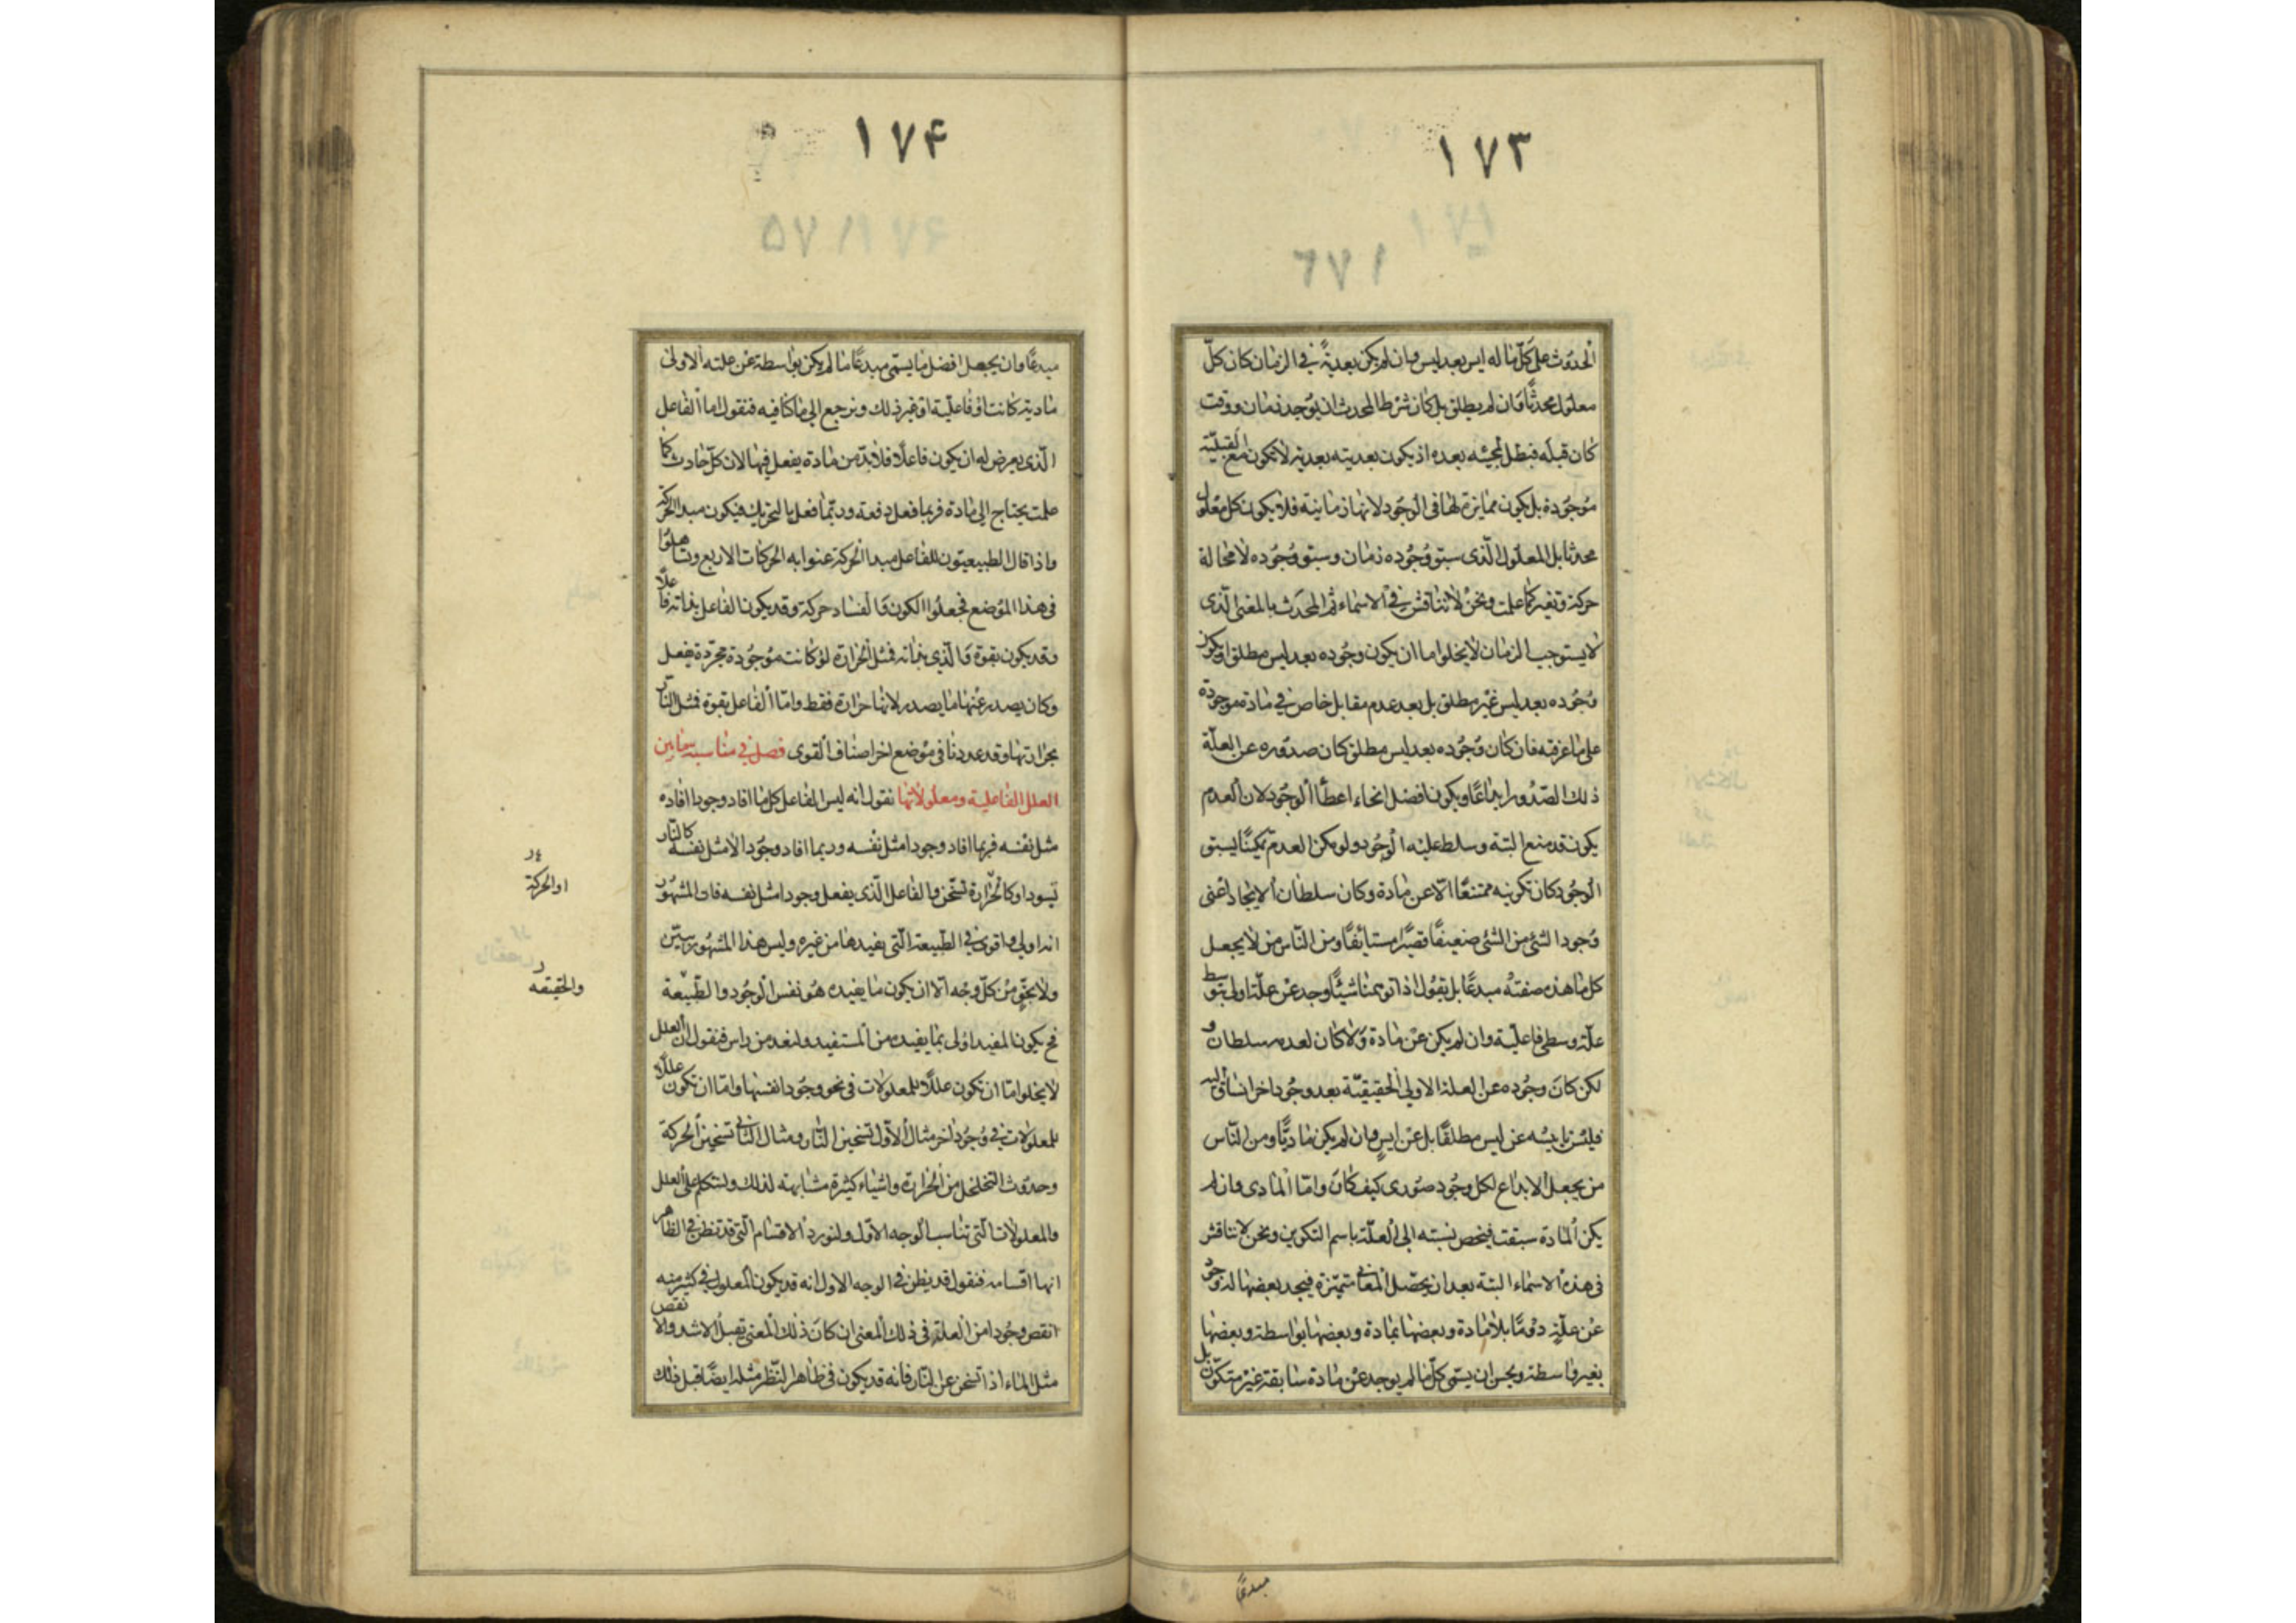 ١٧٣
الحدوث على كل ما له ايس بعد ليس وان لم يكن بعدية في الزمان كان كل
معلول محدثا وان لم يطلق بل كان شرط المحدث ان يوجد زمان ووقت
كان قبله فبطل لمجيئه بعده اذ يكون بعديته بعدية لا يكون مع القبلية
موجودة بل يكون ممايزة لها في الوجود لانها زمانية فلا يكون كل معلول
محدثا بل المعلول الذى سبق وجوده زمان وسبق وجوده لا محالة
حركة وتغير كما علمت ونحن لا نناقش في الاسماء ثم المحدث بالمعنى الذى
لا يستوجب الزمان لا يخلو اما ان يكون وجوده بعد ليس مطلق او يكون
وجوده بعد ليس غير مطلق بل بعد عدم مقابل خاص في مادة موجودة
على ما عرفته فان كان وجوده بعد ليس مطلق كان صدوره عن العلة
ذلك الصدور ابداعا ويكون افضل انحاء اعطاء الوجود لان العدم
يكون قد منع البتة وسلط عليه الوجود ولو مكن العدم تمكينا يسبق
الوجود كان تكوينه ممتنعا الا عن مادة وكان سلطان الايجاد اعنى
وجود الشئ من الشئ ضعيفا قصيرا مستانفا ومن الناس من لا يجعل
كل ما هذه صفته مبدعا بل يقول اذا توهمنا شيئا وجد عن علة اولى بتوسط
علة وسطى فاعلية وان لم يكن عن مادة ولا كان لعدمه سلطان و
لكن كان وجوده عن العلة الاولى الحقيقية بعد وجود اخر انساق اليه
فليس تاييسه عن ليس مطلقا بل عن ايس وان لم يكن ماديا ومن الناس
من يجعل الابداع لكل وجود صورى كيف كان واما المادى وان لم
يكن المادة سبقت فيخص نسبته الى العلة باسم التكوين ونحن لا نناقش
في هذه الاسماء البتة بعد ان يحصل المعانى متميزة فيجد بعضها له وجود
عن علة دوما بلا مادة وبعضها بمادة وبعضها بواسطة وبعضها
بغير واسطة ويحسن ان يسمى كل ما لم يوجد عن مادة سابقة غير متكون بل
مبدعا
١٧۴
مبدعا وان يجعل افضل ما يسمى مبدعا ما لم يكن بواسطة عن علته الاولى
مادية كانت او فاعلية او غير ذلك ونرجع الى ما كنا فيه فنقول اما الفاعل
الذى يعرض له ان يكون فاعلا فلا بد من مادة يفعل فيها لان كل حادث كما
علمت يحتاج الى مادة فربما فعل دفعة وربما فعل بالتحريك فيكون مبدا الحركة
واذا قال الطبيعيون للفاعل مبدا الحركة عنوا به الحركات الاربع وتساهلوا
في هذا الموضع فجعلوا الكون والفساد حركة وقد يكون الفاعل بذاته فاعلا
وقد يكون بقوة والذى بذاته فمثل الحرارة لو كانت موجودة مجردة يفعل
وكان يصدر عنها ما يصدر لانها حرارة فقط واما الفاعل بقوة فمثل النار
بحرارتها وقد عددنا في موضع اخر اصناف القوى فصل في مناسبة ما بين
العلل الفاعلية ومعلولاتها نقول انه ليس الفاعل كل ما افاد وجودا افاده
مثل نفسه فربما افاد وجودا مثل نفسه وربما افاد وجودا لا مثل نفسه كالنار
تسود او كالحرارة تسخن والفاعل الذى يفعل وجودا مثل نفسه فان المشهور
او الحركة
انه اولى واقوى في الطبيعة التى يفيدها من غيره وليس هذا المشهور ببين
ولا بحق من كل وجه الا ان يكون ما يفيده هو نفس الوجود والطبيعة
والحقيقه
فح يكون المفيد اولى بما يفيده من المستفيد ولنعد من راس فنقول ان العلل
لا يخلو اما ان تكون عللا للمعلولات في نحو وجود انفسها واما ان تكون عللا
للمعلولات في وجود اخر مثال الاول تسخين النار ومثال الثانى تسخين الحركة
وحدوث التخلخل من الحرارة واشياء كثيرة مشابهة لذلك ولنتكلم على العلل
والمعلولات التى تناسب الوجه الاول ولنورد الاقسام التى قد تظن في الظاهر
انها اقسامه فنقول قد يظن في الوجه الاول انه قد يكون المعلول في كثير منه
انقص وجودا من العلة في ذلك المعنى ان كان ذلك المعنى يقبل الاشد والانقص
مثل الماء اذا تسخن عن النار فانه قد يكون في ظاهر النظر مثله ايضا قبل ذلك